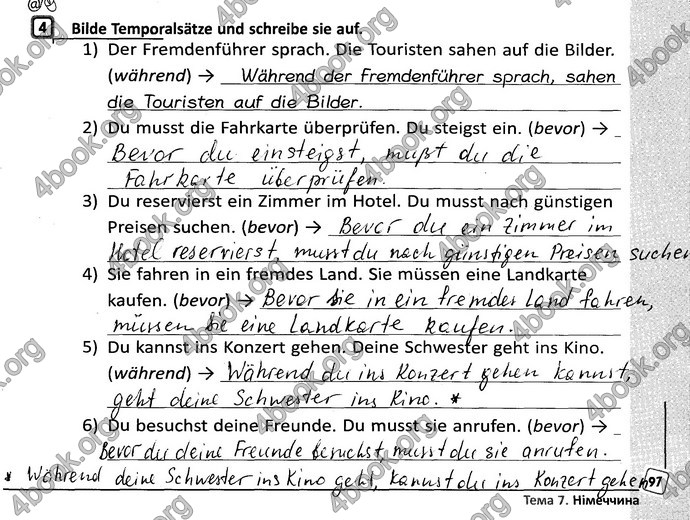 4 Bilde Temporalsätze und schreibe sie auf.
1) Der Fremdenführer sprach. Die Touristen sahen auf die Bilder.
(während) → Während der Fremdenführer sprach, sahen
die Touristen auf die Bilder.
2) Du musst die Fahrkarte überprüfen. Du steigst ein. (bevor) →
Bevor du einsteigst, mußt du die
Fahrkarte überprüfen.
3) Du reservierst ein Zimmer im Hotel. Du musst nach günstigen
Preisen suchen. (bevor) → Bevor du ein Zimmer im
Hotel reservierst, musst du nach günstigen Preisen suchen
4) Sie fahren in ein fremdes Land. Sie müssen eine Landkarte
kaufen. (bevor) → Bevor Sie in ein fremdes Land fahren,
müssen Sie eine Landkarte kaufen.
5) Du kannst ins Konzert gehen. Deine Schwester geht ins Kino.
(während) → Während du ins Konzert gehen kannst,
geht deine Schwester ins Kino. *
6) Du besuchst deine Freunde. Du musst sie anrufen. (bevor) →
Bevor du deine Freunde besuchst, musst du sie anrufen.
* Während deine Schwester ins Kino geht, kannst du ins Konzert gehen
97
Тема 7. Німеччина
4book.org